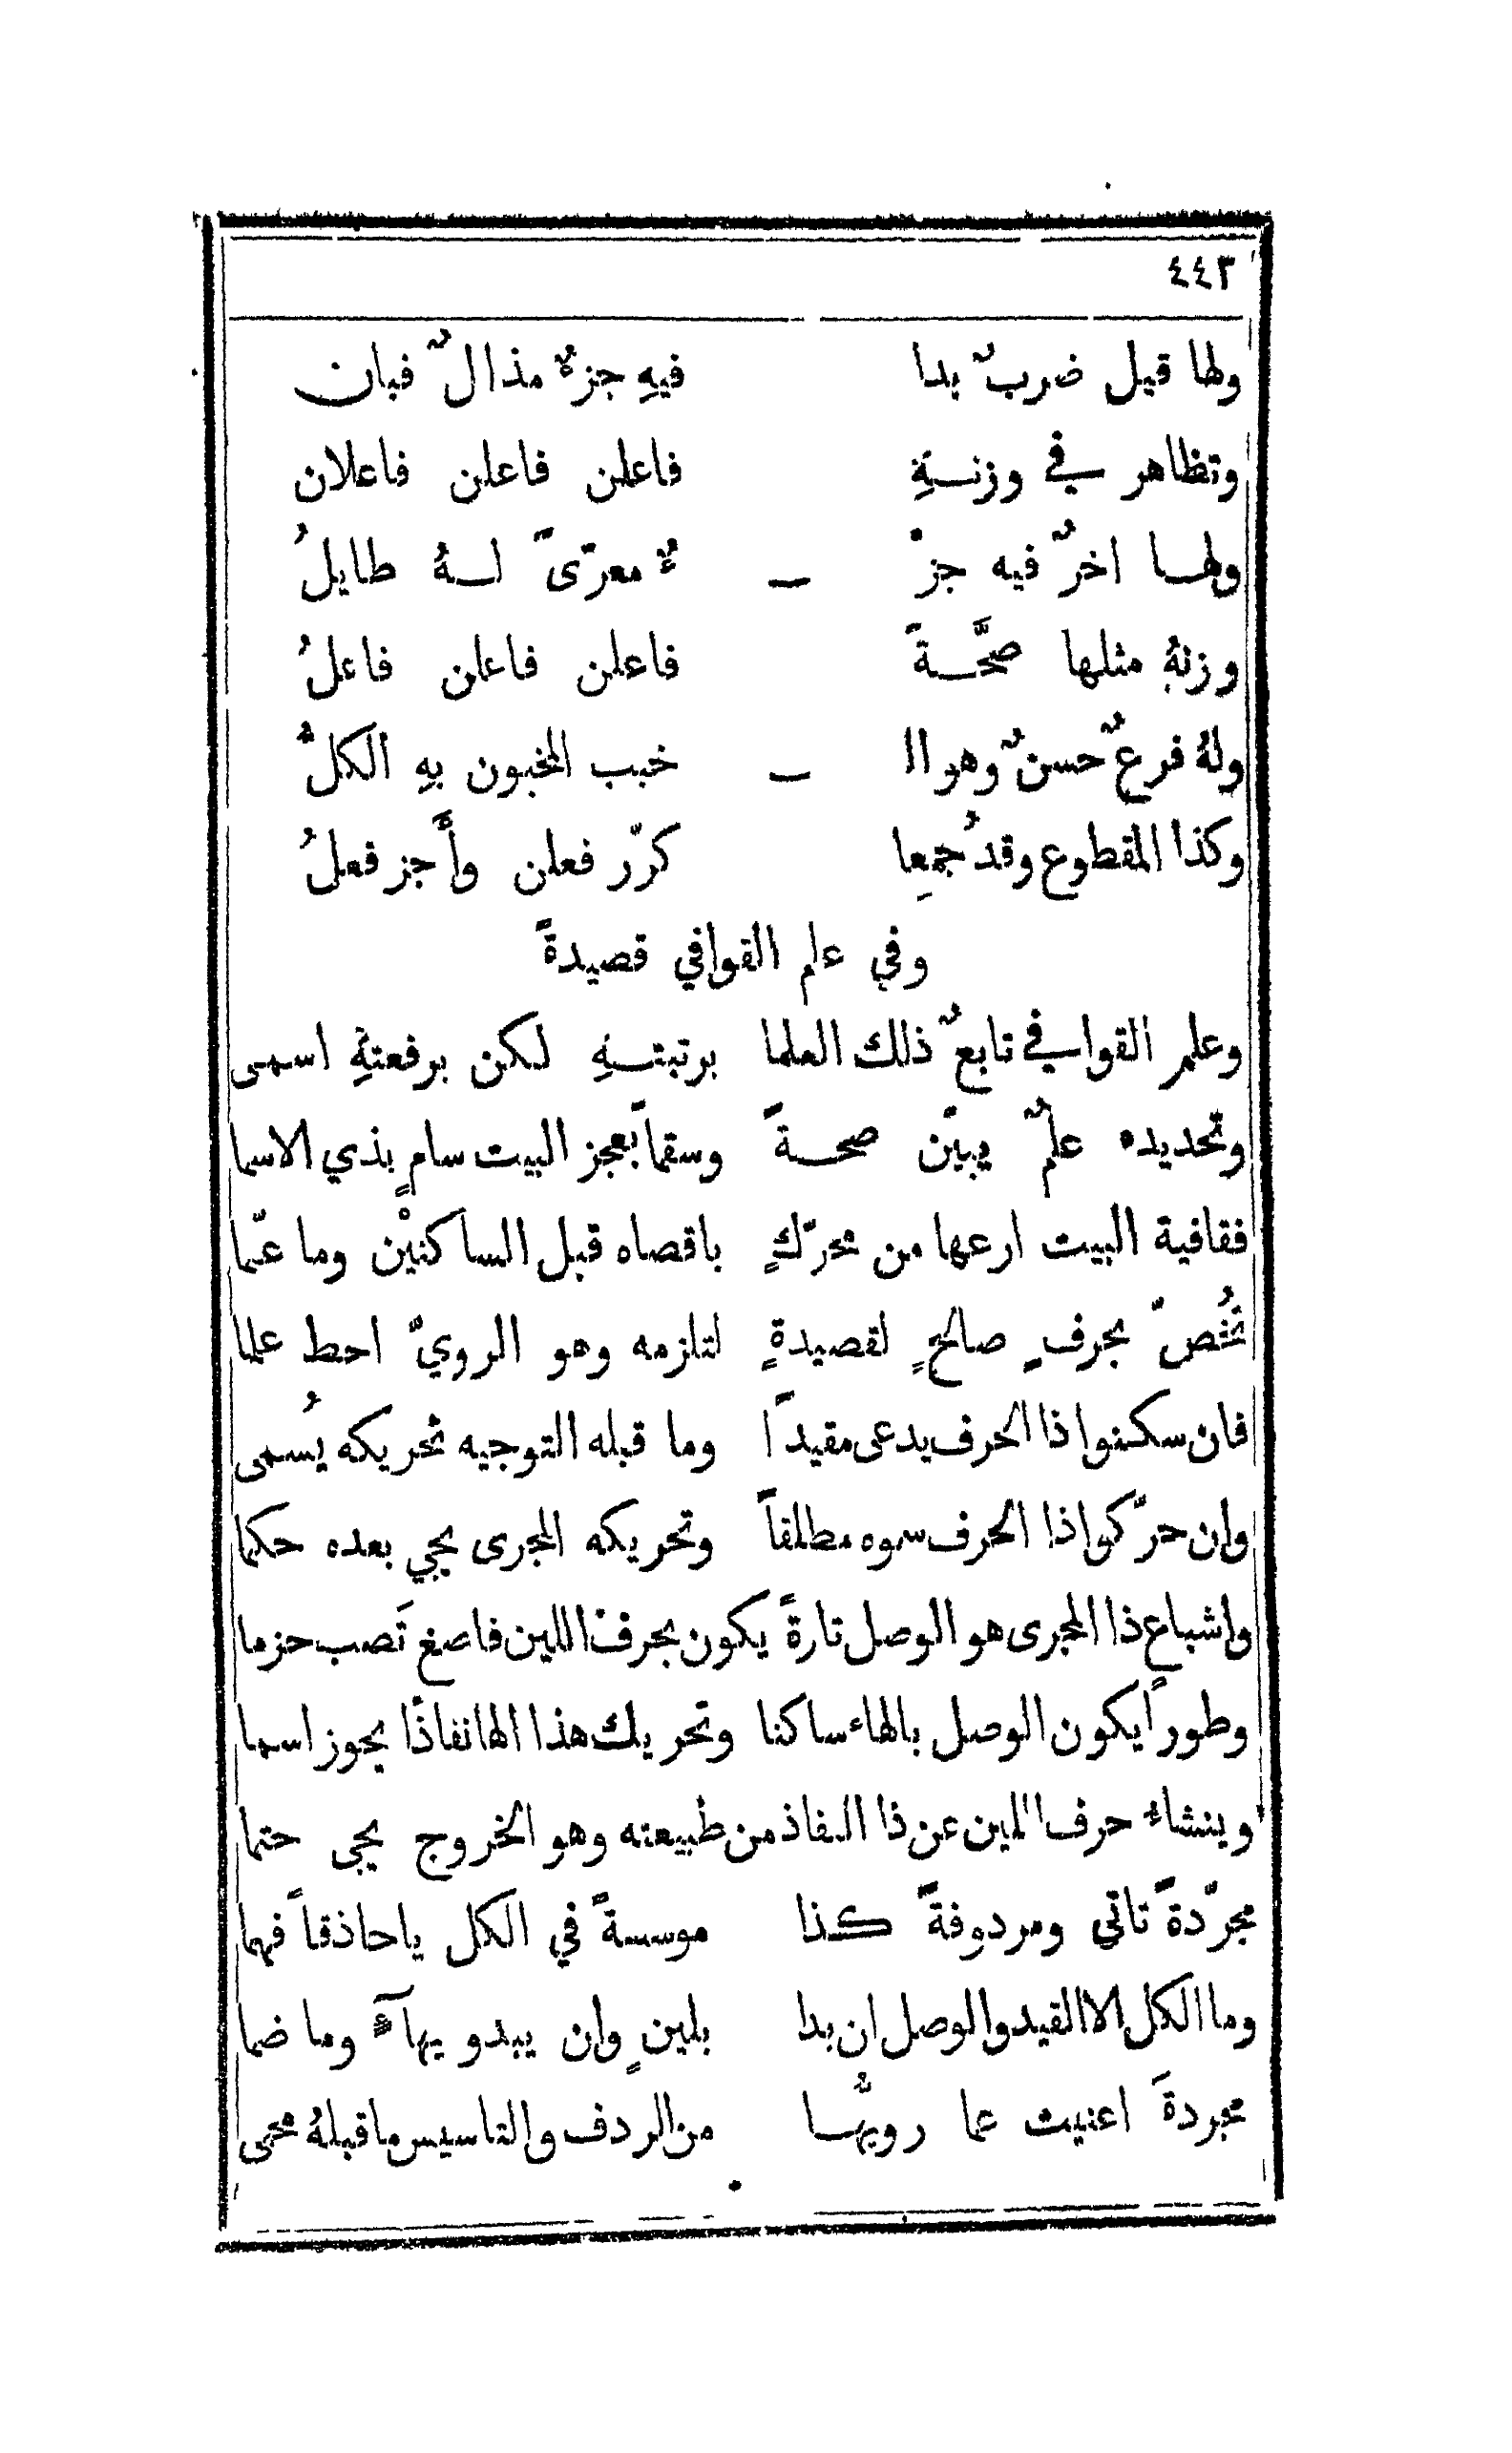 ٤٤٣
ولها قيل ضربٌ بدا فيهِ جزءٌ مذالٌ فبان
وتظاهر في وزنــهِ فاعلن فاعلن فاعلان
ولهــا اخرٌ فيه جزْ — ءٌ معرّىً لــهُ طايلُ
وزنهُ مثلها صحَّــةً فاعلن فاعلن فاعلُ
ولهُ فرعٌ حسنٌ وهو ال — خبب المخبون بهِ الكلُّ
وكذا المقطوع وقد جُمِعا كرّر فعلن وأَجز فعلُ
وفي علم القوافي قصيدةً
وعلم القوافي تابعٌ ذلك العلما برتبتــهِ لكن برفعتهِ اسمى
وتحديده علمٌ يبيّن صحــةً وسقماً بعجز البيت سامٍ بذي الاسما
فقافية البيت ارعها من محرّكٍ باقصاه قبل الساكنيْن وما عمّا
تُخُصّ بحرفٍ صالحٍ لقصيدةٍ لتلزمه وهو الرويّ احط علما
فان سكنوا ذا الحرف يدعى مقيداً وما قبله التوجيه تحريكه يُسمى
وان حرّكوا ذا الحرف سموه مطلقاً وتحريكه المجرى يجي بعده حكما
واشباع ذا المجرى هو الوصل تارةً يكون بحرف اللين فاصغ تَصب حزما
وطوراً يكون الوصل بالهاء ساكنا وتحريك هذا الها نفاذًا يجوز اسما
وينشاءُ حرف اللين عن ذا النفاذ من طبيعته وهو الخروج يجى حتما
مجرّدةً تاتي ومردوفةً كذا موسسةً في الكل ياحاذقاً فهما
وما الكل الا القيد والوصل ان بدا بلينٍ وان يبدو بهآءٍ وما ضما
مجردةً اعنيت عما رويُّهــا من الردف والتاسيس ما قبلهُ محمى